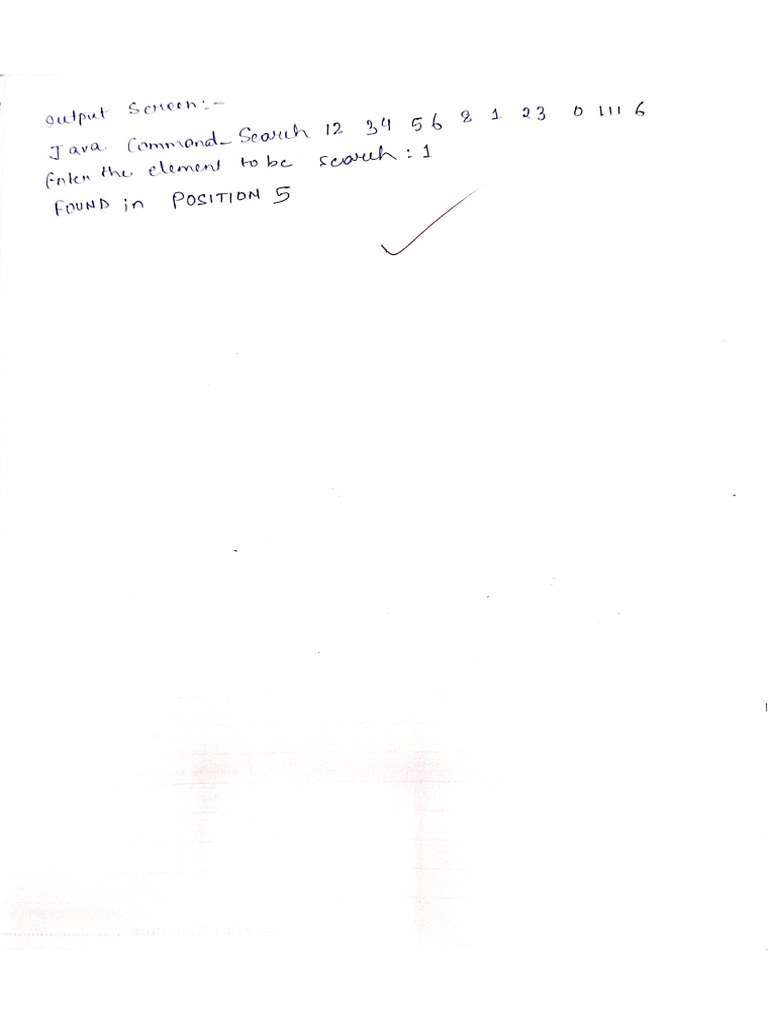 Output Screen:-
Java Command_Search 12 34 56 8 1 23 0 111 6
Enter the element to be search : 1
FOUND in POSITION 5